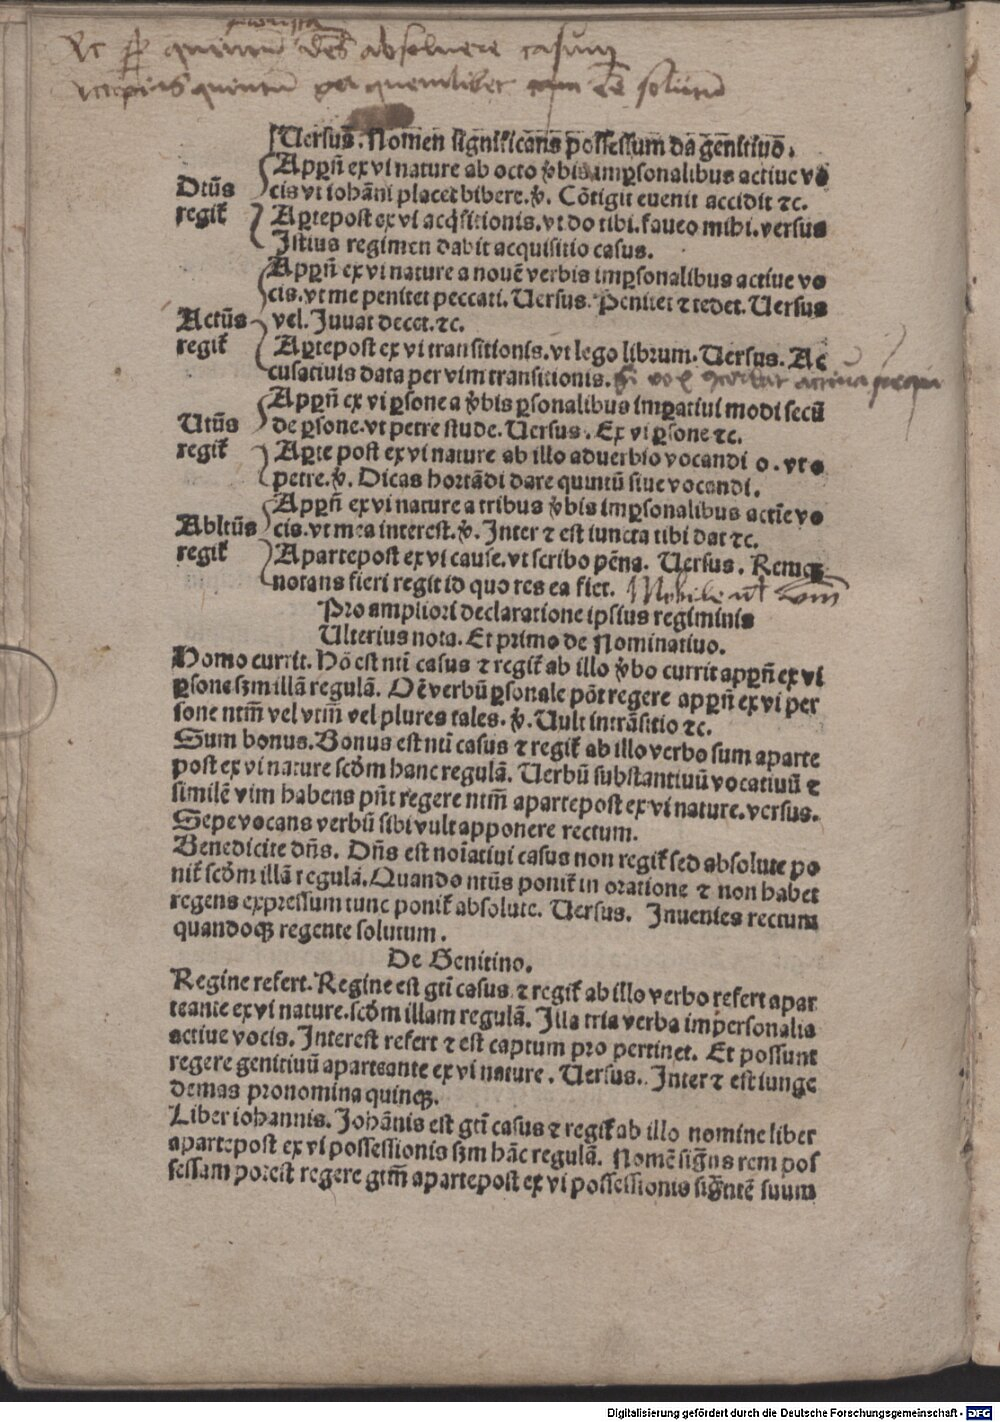 quintū dēs absoluere casum
quintū per quemlibet eē solutū
Uersus. Nomen significans possessum da genitiuo.
Appn̄ ex vi nature ab octo v̓bis imꝑsonalibus actiue vo
Dtūs cis vt iohāni placet bibere. v̓. Cōtigit euenit accidit ⁊c.
regiť Aꝑtepost ex vi acq̇sitionis. vt do tibi. faueo mihi. versus
Istius regimen dabit acquisitio casus.
Appn̄ ex vi nature a nouē verbis imꝑsonalibus actiue vo
cis. vt me penitet peccati. Uersus. Penitet ⁊ tedet. Uersus
Actūs vel. Iuuat decet. ⁊c.
regiť Aꝑtepost ex vi transitionis. vt lego librum. Uersus. Ac
cusatiuis data per vim transitionis.
Appn̄ ex vi ꝑsone a v̓bis ꝑsonalibus imꝑatiui modi secū
Utūs de ꝑsone. vt petre stude. Uersus. Ex vi ꝑsone ⁊c.
regiť Aꝑte post ex vi nature ab illo aduerbio vocandi o. vt o
petre. v̓. Dicas hortādi dare quintū siue vocandi.
Appn̄ ex vi nature a tribus v̓bis imꝑsonalibus actīe vo
Abltūs cis. vt mea interest. v̓. Inter ⁊ est iuncta tibi dat ⁊c.
regiť A partepost ex vi cause. vt scribo pēna. Uersus. Remqꝫ
notans fieri regit id quo res ea fiet. Mobile
Pro ampliori declaratione ipsius regiminis
Ulterius nota. Et primo de Nominatiuo.
Homo currit. Hō est nti casus ⁊ regiť ab illo v̓bo currit appn̄ ex vi
ꝑsone sꝫm illā regulā. Oē verbū ꝑsonale pōt regere appn̄ ex vi per
sone ntm̄ vel vtm̄ vel plures tales. v̓. Uult intrāsitio ⁊c.
Sum bonus. Bonus est nti casus ⁊ regiť ab illo verbo sum aparte
post ex vi nature scd̓m hanc regulā. Uerbū substantiuū vocatiuū ⁊
similē vim habens pn̄t regere ntm̄ apartepost ex vi nature. versus.
Sepe vocans verbū sibi vult apponere rectum.
Benedicite dn̄s. Dn̄s est noīatiui casus non regiť sed absolute po
niť scd̓m illā regulā. Quando ntūs poniť in oratione ⁊ non habet
regens expressum tunc poniť absolute. Uersus. Inuenies rectum
quandoqꝫ regente solutum.
De Genitiuo.
Regine refert. Regine est gti casus ⁊ regiť ab illo verbo refert apar
teante ex vi nature. scd̓m illam regulā. Illa tria verba impersonalia
actiue vocis. Interest refert ⁊ est captum pro pertinet. Et possunt
regere genitiuū aparteante ex vi nature. Uersus. Inter ⁊ est iunge
demas pronomina quinqꝫ.
Liber iohannis. Johānis est gti casus ⁊ regiť ab illo nomine liber
apartepost ex vi possessionis sꝫm hāc regulā. Nomē sign̄s rem pos
sessam potest regere gtm̄ apartepost ex vi possessionis sign̄tē suum
Digitalisierung gefördert durch die Deutsche Forschungsgemeinschaft - DFG